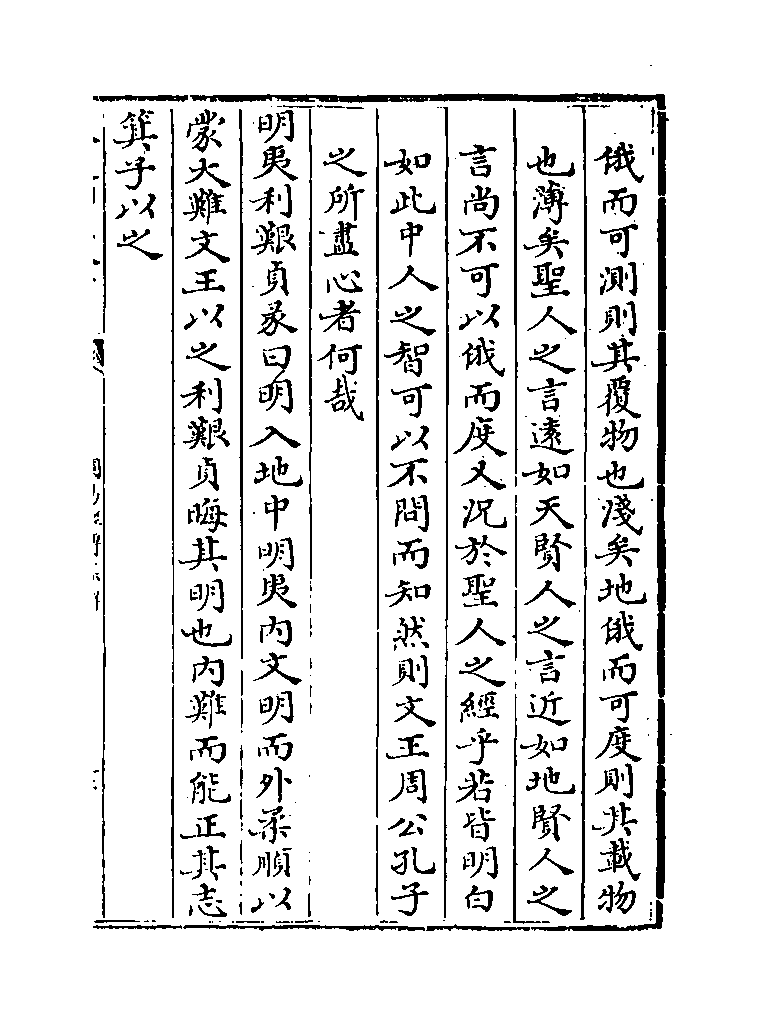 俄而可測則其覆物也淺矣地俄而可度則其載物
也薄矣聖人之言遠如天賢人之言近如地賢人之
言尚不可以俄而度又況於聖人之經乎若皆明白
如此中人之智可以不問而知然則文王周公孔子
之所盡心者何哉
明夷利艱貞彖曰明入地中明夷內文明而外柔順以
蒙大難文王以之利艱貞晦其明也內難而能正其志
箕子以之